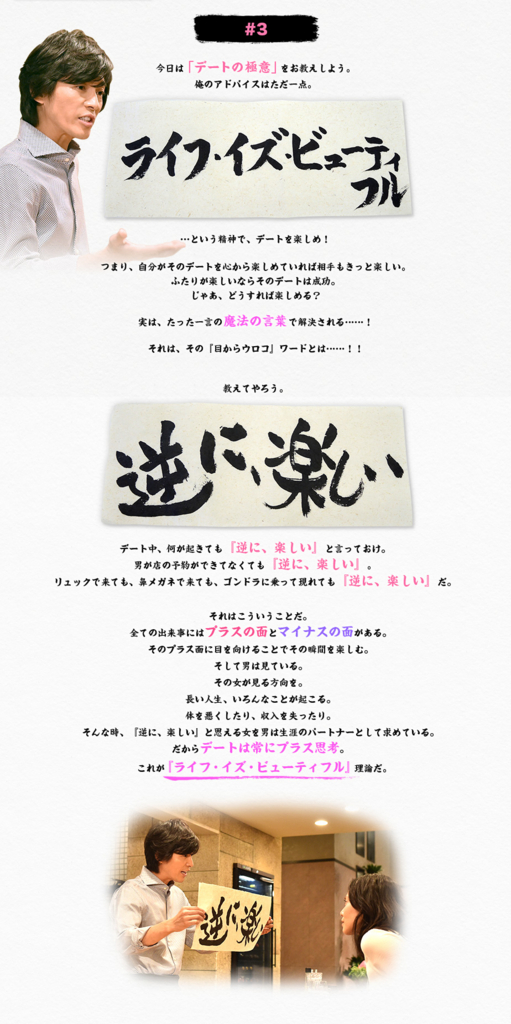 #3
今日は「デートの極意」をお教えしよう。
俺のアドバイスはただ一点。
ライフ・イズ・ビューティ
フル
…という精神で、デートを楽しめ！
つまり、自分がそのデートを心から楽しめていれば相手もきっと楽しい。
ふたりが楽しいならそのデートは成功。
じゃあ、どうすれば楽しめる？
実は、たった一言の魔法の言葉で解決される……！
それは、その『目からウロコ』ワードとは……！！
教えてやろう。
逆に、楽しい
デート中、何が起きても『逆に、楽しい』と言っておけ。
男が店の予約ができてなくても『逆に、楽しい』。
リュックで来ても、鼻メガネで来ても、ゴンドラに乗って現れても『逆に、楽しい』だ。
それはこういうことだ。
全ての出来事にはプラスの面とマイナスの面がある。
そのプラス面に目を向けることでその瞬間を楽しむ。
そして男は見ている。
その女が見る方向を。
長い人生、いろんなことが起こる。
体を悪くしたり、収入を失ったり。
そんな時、『逆に、楽しい』と思える女を男は生涯のパートナーとして求めている。
だからデートは常にプラス思考。
これが『ライフ・イズ・ビューティフル』理論だ。
逆に、楽しい